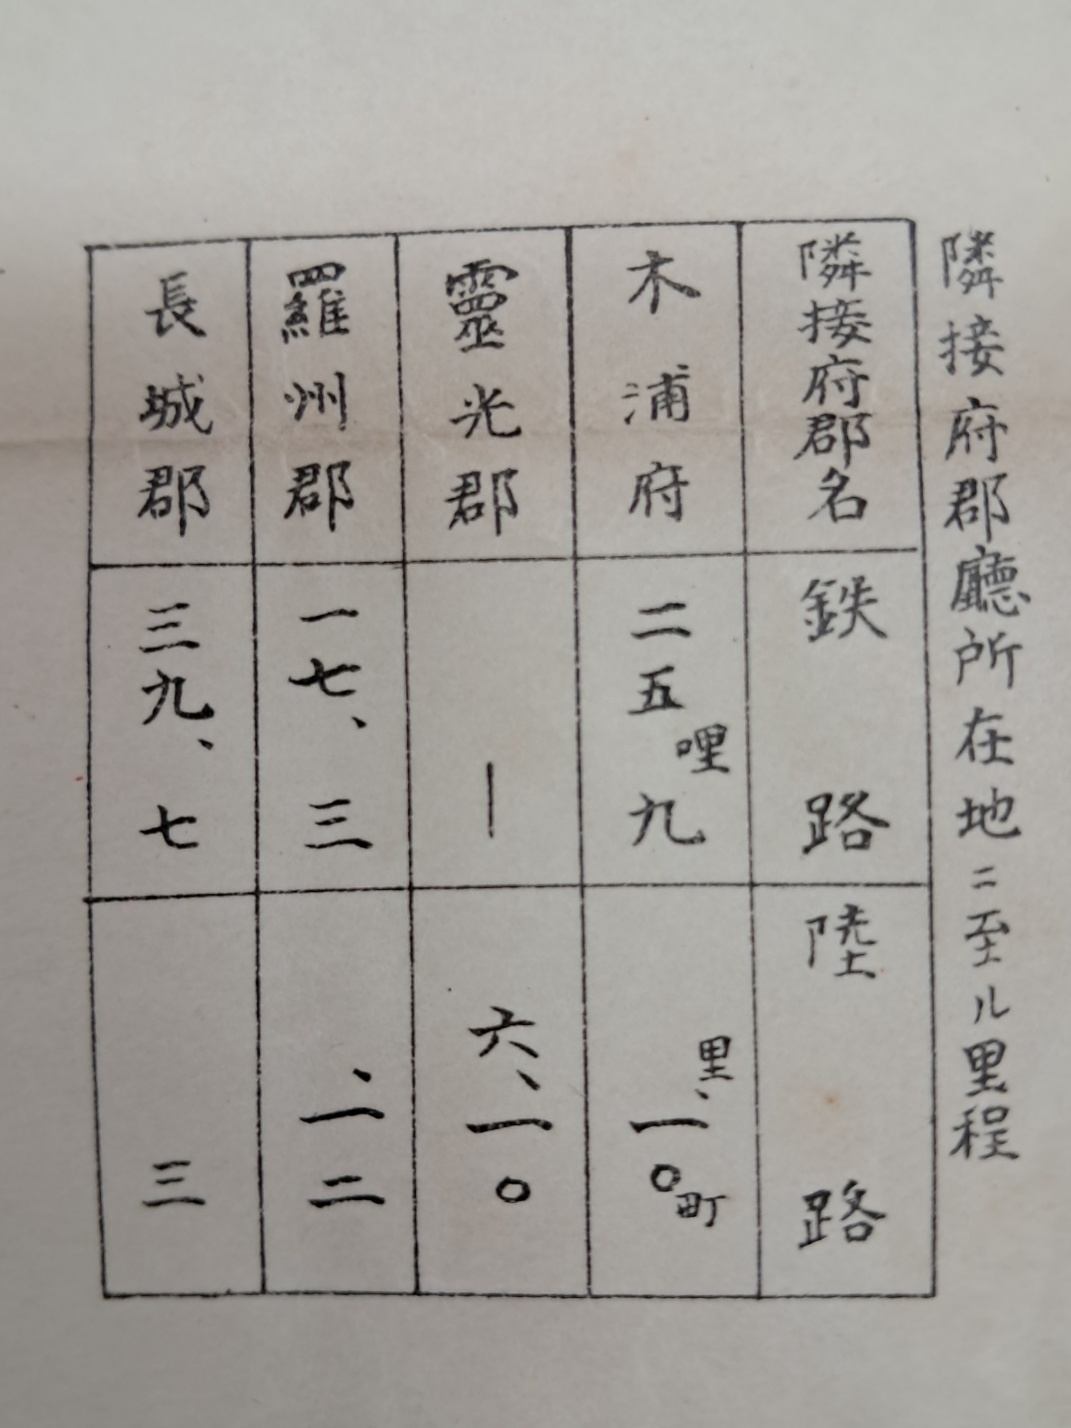 隣接府郡廳所在地ニ至ル里程
隣接府郡名 鉄路 陸路
木浦府 二五哩九 里、一〇町
靈光郡 | 六、一〇
羅州郡 一七、三 、一二
長城郡 三九、七 三